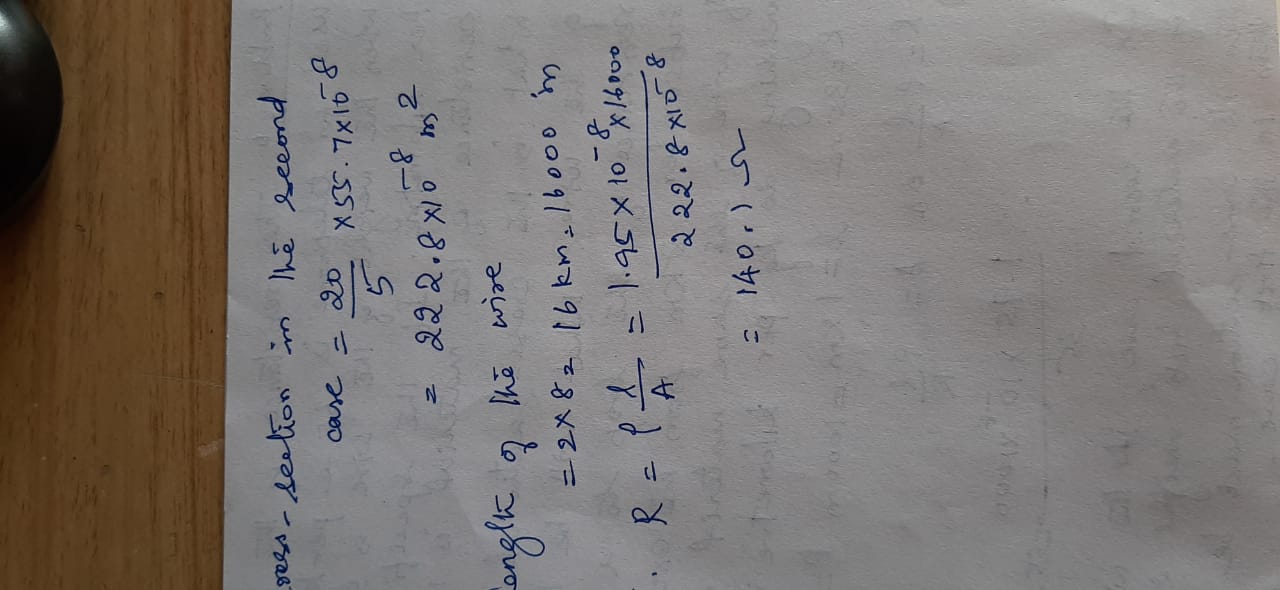 cross-section in the second
case = 20/5 × 55.7×10⁻⁸
= 222.8×10⁻⁸ m²
length of the wire
= 2×8 = 16 km = 16000 m
R = ρ l/A = 1.95×10⁻⁸×16000 / 222.8×10⁻⁸
= 140.1 Ω